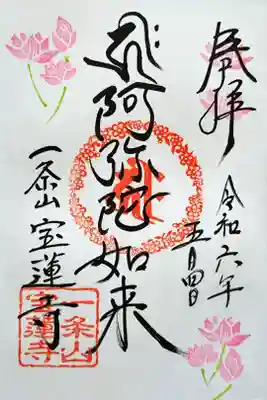 奉拝
令和六年
五月四日
阿弥陀如来
一条山宝蓮寺
一条山
宝蓮寺